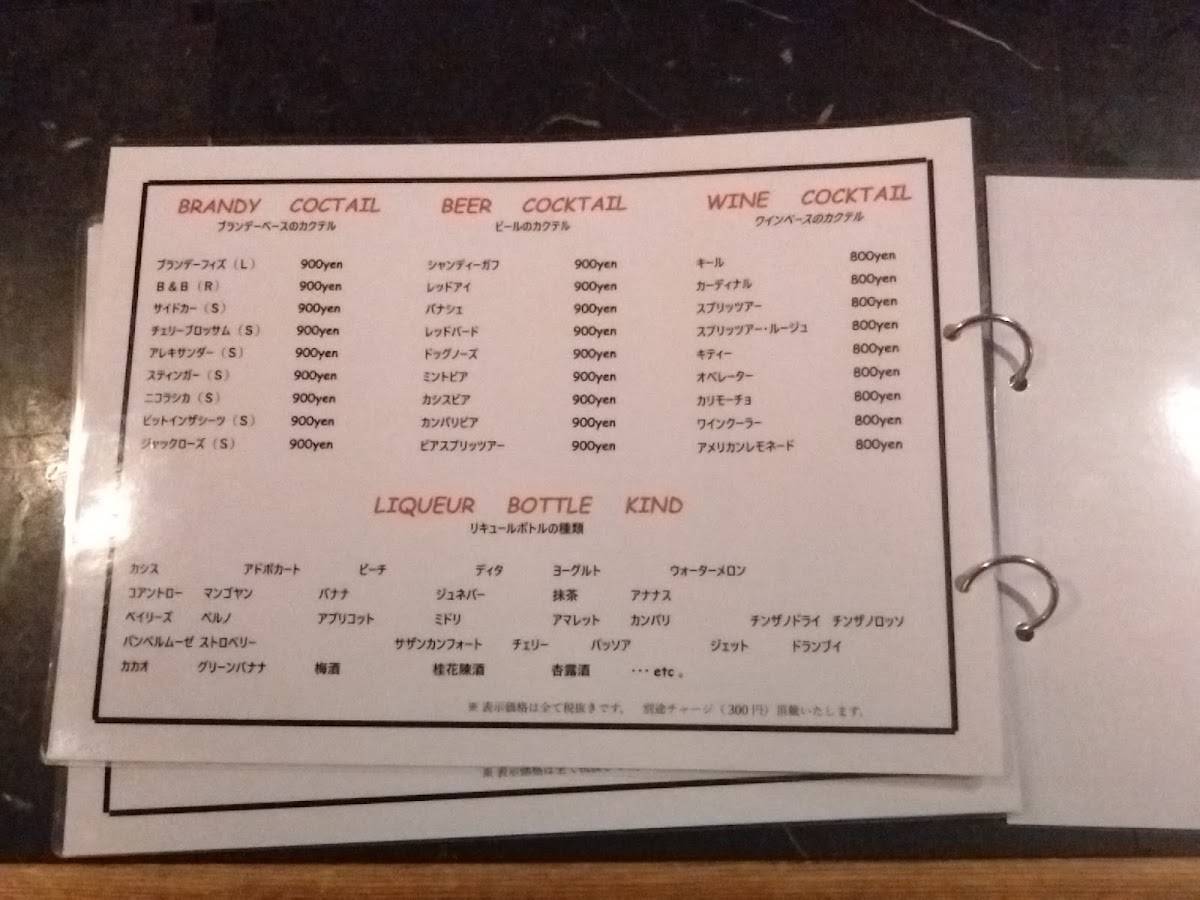 BRANDY COCTAIL
ブランデーベースのカクテル
ブランデーフィズ（L） 900yen
B＆B（R） 900yen
サイドカー（S） 900yen
チェリーブロッサム（S） 900yen
アレキサンダー（S） 900yen
スティンガー（S） 900yen
ニコラシカ（S） 900yen
ビットインザシーツ（S） 900yen
ジャックローズ（S） 900yen
BEER COCKTAIL
ビールのカクテル
シャンディーガフ 900yen
レッドアイ 900yen
パナシェ 900yen
レッドバード 900yen
ドッグノーズ 900yen
ミントビア 900yen
カシスビア 900yen
カンパリビア 900yen
ビアスプリッツアー 900yen
WINE COCKTAIL
ワインベースのカクテル
キール 800yen
カーディナル 800yen
スプリッツアー 800yen
スプリッツアー・ルージュ 800yen
キティー 800yen
オペレーター 800yen
カリモーチョ 800yen
ワインクーラー 800yen
アメリカンレモネード 800yen
LIQUEUR BOTTLE KIND
リキュールボトルの種類
カシス アドボカート ピーチ ディタ ヨーグルト ウォーターメロン
コアントロー マンゴヤン バナナ ジュネバー 抹茶 アナナス
ベイリーズ ペルノ アプリコット ミドリ アマレット カンパリ チンザノドライ チンザノロッソ
パンペルムーゼ ストロベリー サザンカンフォート チェリー パッソア ジェット ドランブイ
カカオ グリーンバナナ 梅酒 桂花陳酒 杏露酒 ･･･ etc 。
※ 表示価格は全て税抜きです。 別途チャージ（300円）頂戴いたします。
※ 表示価格は全て税抜